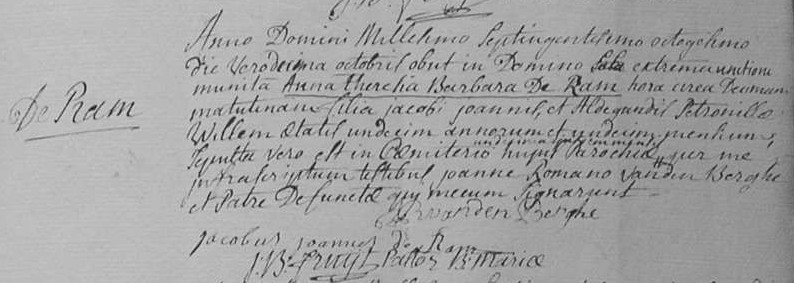 De Ram
Anno Domini Millesimo Septingentesimo octogesimo
die Vero decima octobris obiit in Domino Sola extrema unctione
munita Anna Theresia Barbara De Ram hora circa Decimam
matutinam filia jacobi joannis, et Aldegundis Petronillæ
Willem ætatis undecim annorum et undecim mensium,
Sepulta vero est in Cæmiterio hujus Parochiæ per me
infrascriptum testibus joanne Romano Vanden Berghe
et Patre Defunctæ qui mecum Signarunt
vanden Berghe
jacobus joannes de Ram
J: B: Pastor B: Mariæ